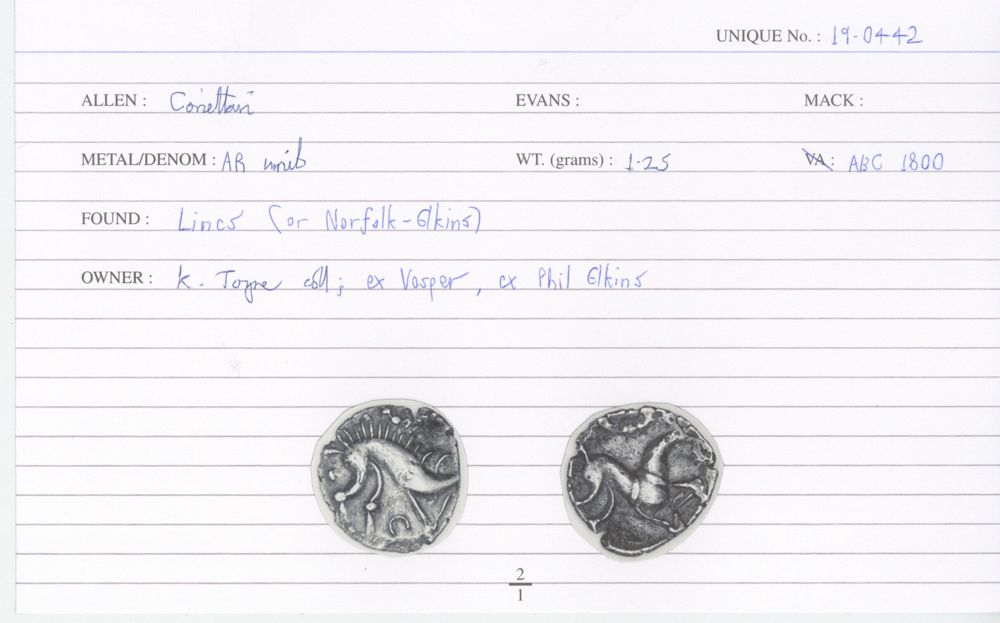 UNIQUE No. : 19-0442
ALLEN : Corieltavi EVANS : MACK :
METAL/DENOM : AR unit WT. (grams) : 1.25 VA: ABC 1800
FOUND : Lincs (or Norfolk - Elkins)
OWNER : K. Toyne coll; ex Vosper, ex Phil Elkins
2
1